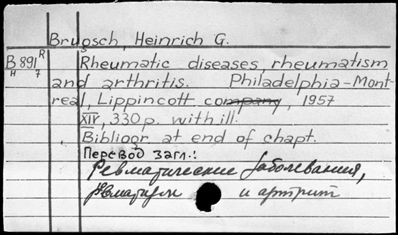 Brugsch, Heinrich G.
B 891 R Rheumatic diseases rheumatism
H 7 and arthritis. Philadelphia-Mont-
real, Lippincott company, 1957
XIV, 330 p. with ill.
Bibliogr at end of chapt.
Перевод загл.:
Ревматические заболевания,
и артрит